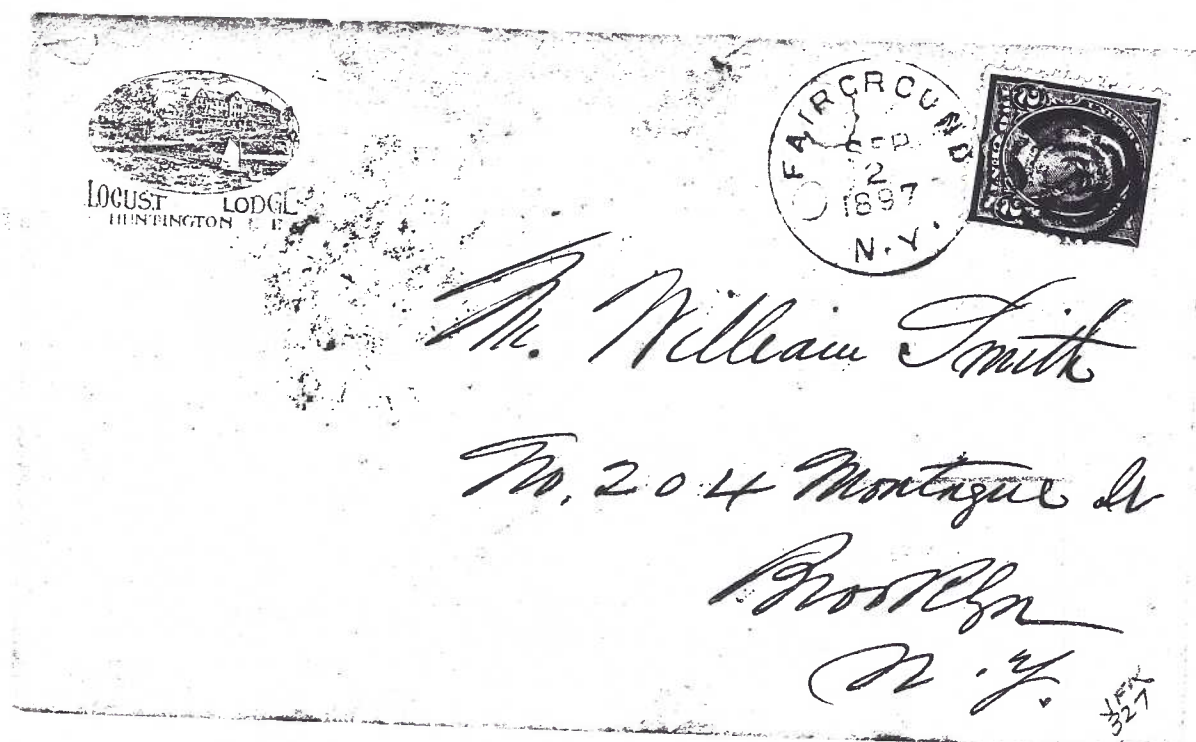 LOCUST LODGE
HUNTINGTON
FAIRGROUND
SEP
2
1897
N.Y.
Mr. William Smith
No. 204 Montague St
Brooklyn
N.Y.
327